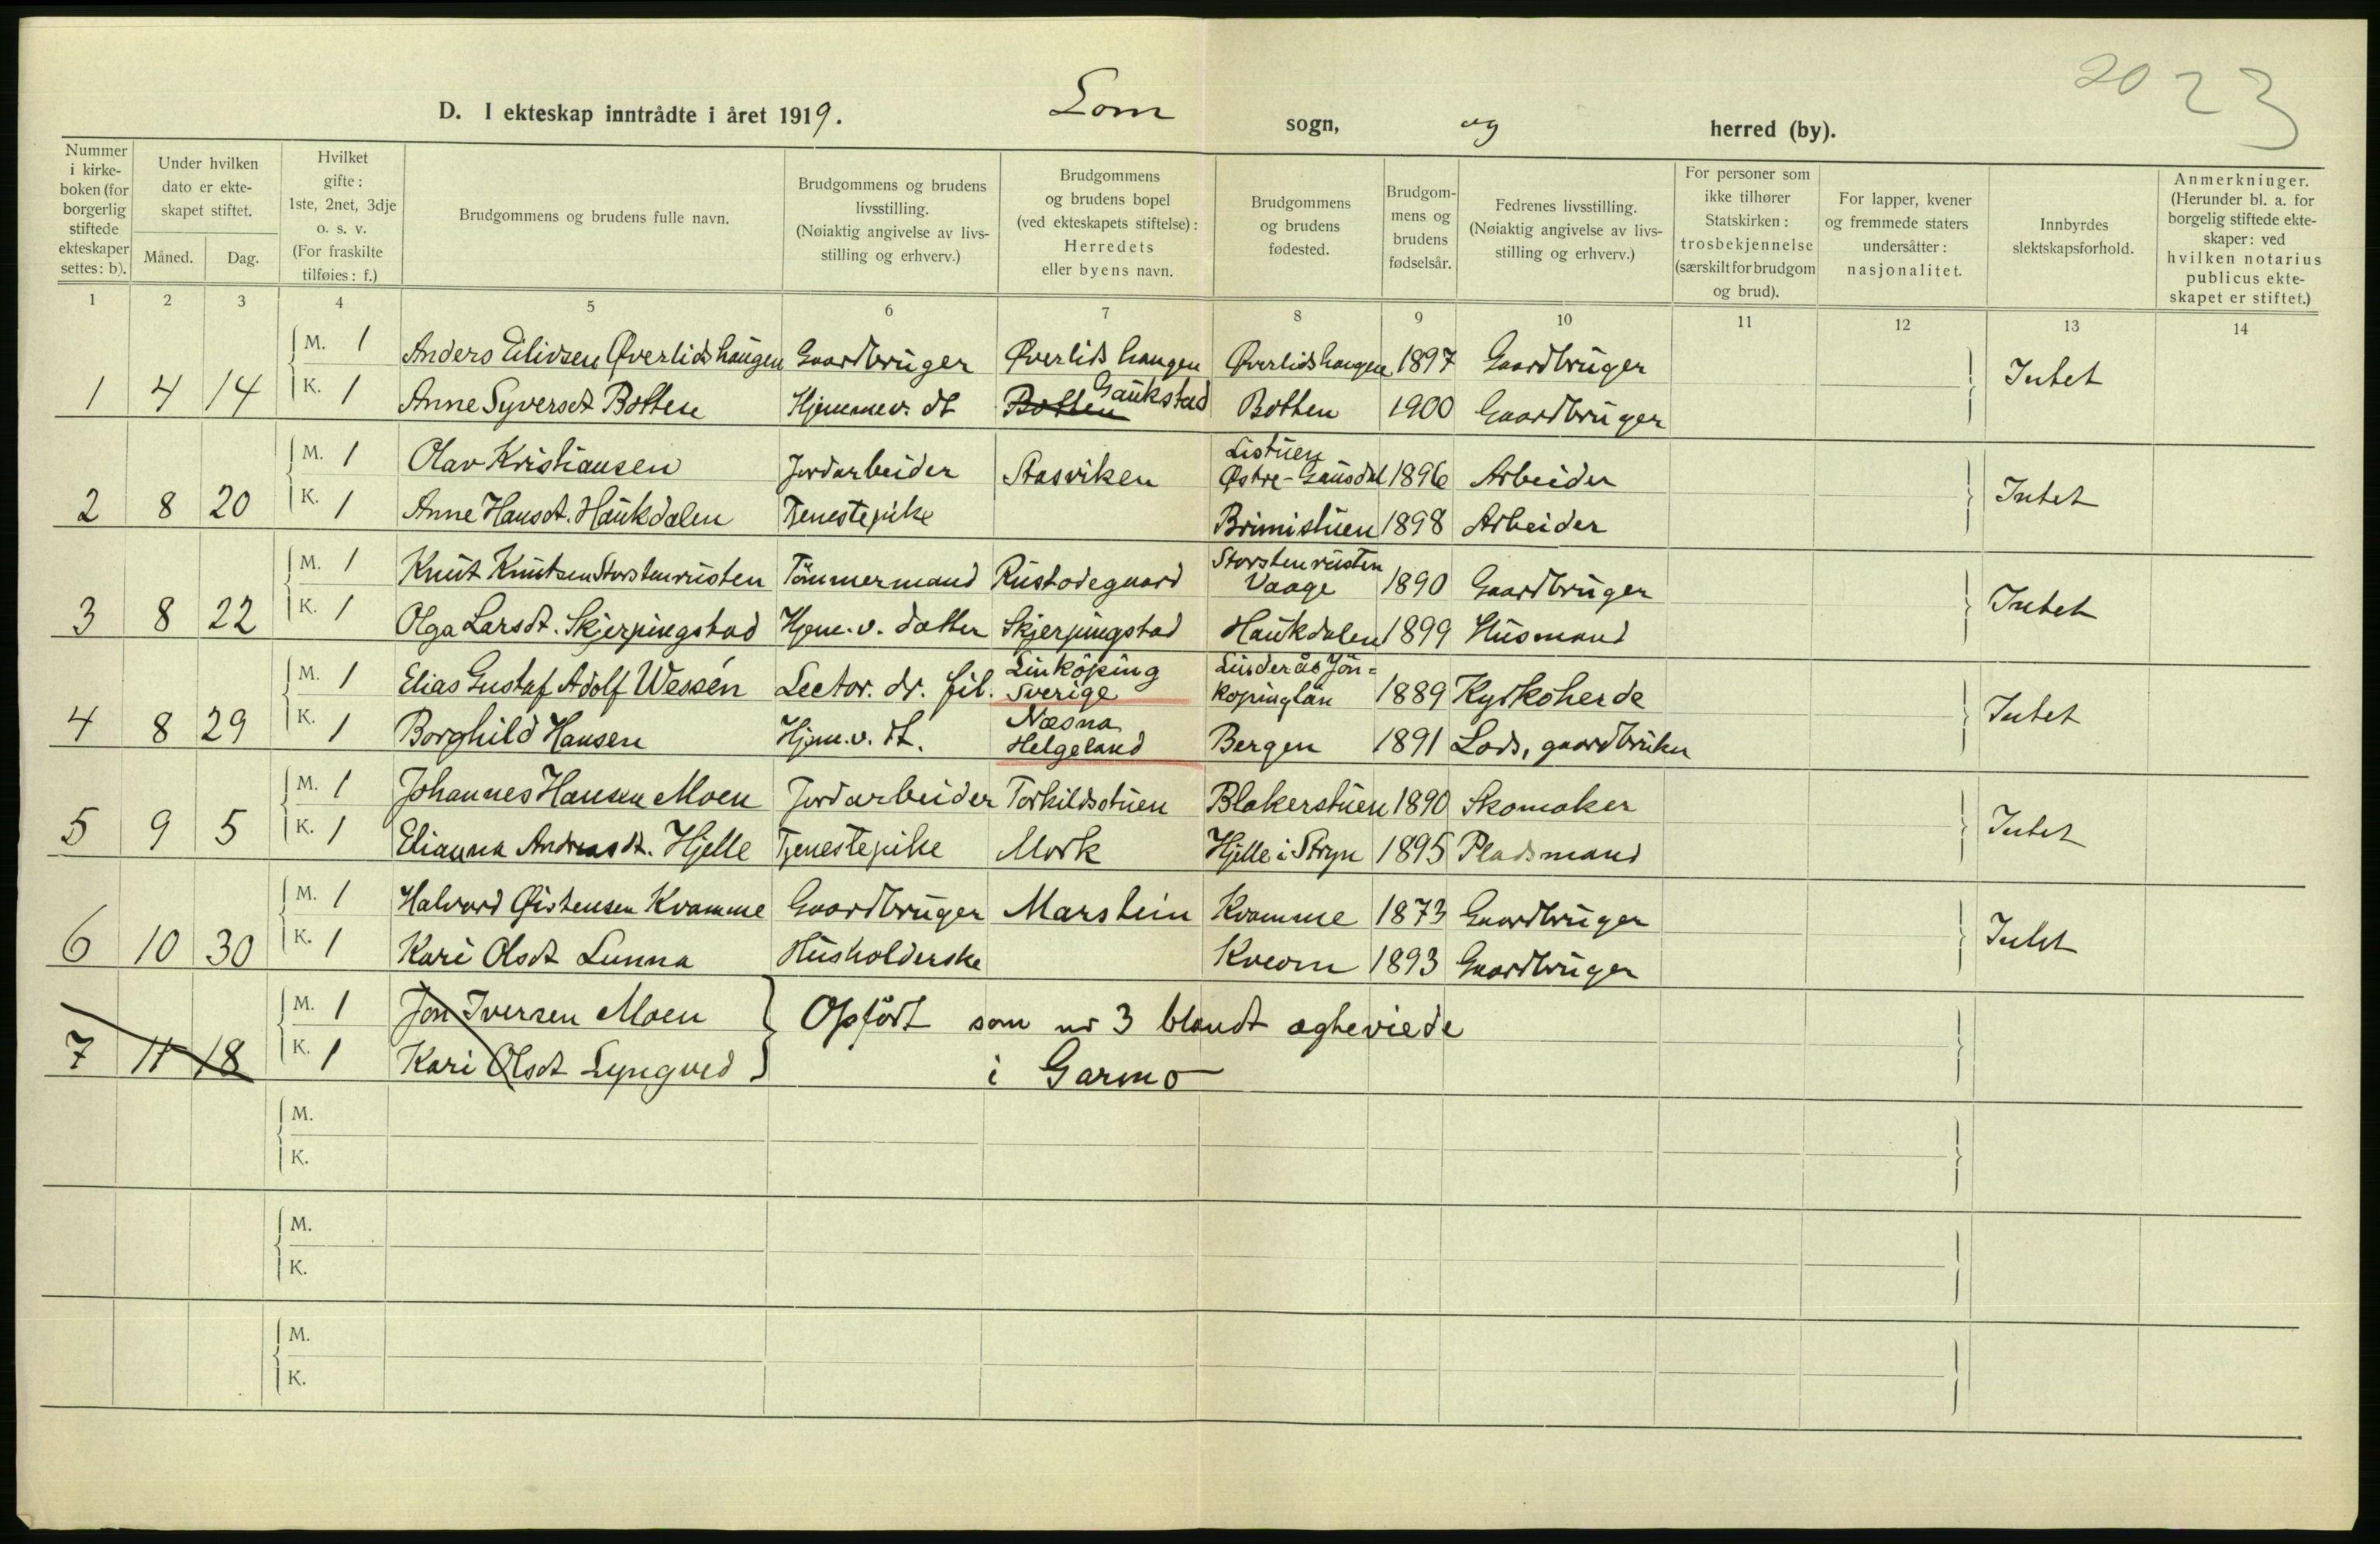 2023
D. I ekteskap inntrådte i året 1919. Lom sogn, og herred (by).
Nummer i kirkeboken (for borgerlig stiftede ekteskaper settes: b).
Under hvilken dato er ekteskapet stiftet.
Måned. Dag.
Hvilket gifte: 1ste, 2net, 3dje o. s. v. (For fraskilte tilføies: f.)
Brudgommens og brudens fulle navn.
Brudgommens og brudens livsstilling. (Nøiaktig angivelse av livsstilling og erhverv.)
Brudgommens og brudens bopel (ved ekteskapets stiftelse): Herredets eller byens navn.
Brudgommens og brudens fødested.
Brudgommens og brudens fødselsår.
Fedrenes livsstilling. (Nøiaktig angivelse av livsstilling og erhverv.)
For personer som ikke tilhører Statskirken: trosbekjennelse (særskilt for brudgom og brud).
For lapper, kvener og fremmede staters undersåtter: nasjonalitet.
Innbyrdes slektskapsforhold.
Anmerkninger. (Herunder bl. a. for borgerlig stiftede ekteskaper: ved hvilken notarius publicus ekteskapet er stiftet.)
1 2 3 4 5 6 7 8 9 10 11 12 13 14
M. 1 Anders Eilivsen Øverlidshaugen Gaardbruger Øverlidshaugen Øverlidshaugen 1897 Gaardbruger Intet
1 4 14 K. 1 Anne Syversdt Botten Hjemmev. dt Botten Gaukstad Botten 1900 Gaardbruger
M. 1 Olav Kristiansen Jordarbeider Aasviken Listuen Østre-Gausdal 1896 Arbeider Intet
2 8 20 K. 1 Anne Hansdt. Haukdalen Tjenestepike Brimistuen 1898 Arbeider
M. 1 Knut Knutsen Storstenrusten Tömmermand Rustodegaard Storstenrusten Vaage 1890 Gaardbruger Intet
3 8 22 K. 1 Olga Larsdt. Skjerpingstad Hjem.v. datter Skjerpingstad Haukdalen 1899 Husmand
M. 1 Elias Gustaf Adolf Wessén Lector. dr. fil. Linköping Sverige Linderås Jön=köpinglän 1889 Kyrkoherde Intet
4 8 29 K. 1 Borghild Hansen Hjem.v. dt. Næsna Helgeland Bergen 1891 Lods, gaardbruker
M. 1 Johannes Hansen Moen Jordarbeider Torkildsstuen Blakerstuen 1890 Skomaker Intet
5 9 5 K. 1 Elianna Andreasdt. Hjelle Tjenestepike Mork Hjelle i Stryn 1895 Pladsmand
M. 1 Halvard Øistensen Kvamme Gaardbruger Marstein Kvamme 1873 Gaardbruger Intet
6 10 30 K. 1 Kari Olsdt Lunna Husholderske Kveom 1893 Gaardbruger
M. 1 Jon Iversen Moen Opført som nr 3 blandt ægteviede
7 11 18 K. 1 Kari Olsdt Lyngved i Garmo
M.
K.
M.
K.
M.
K.